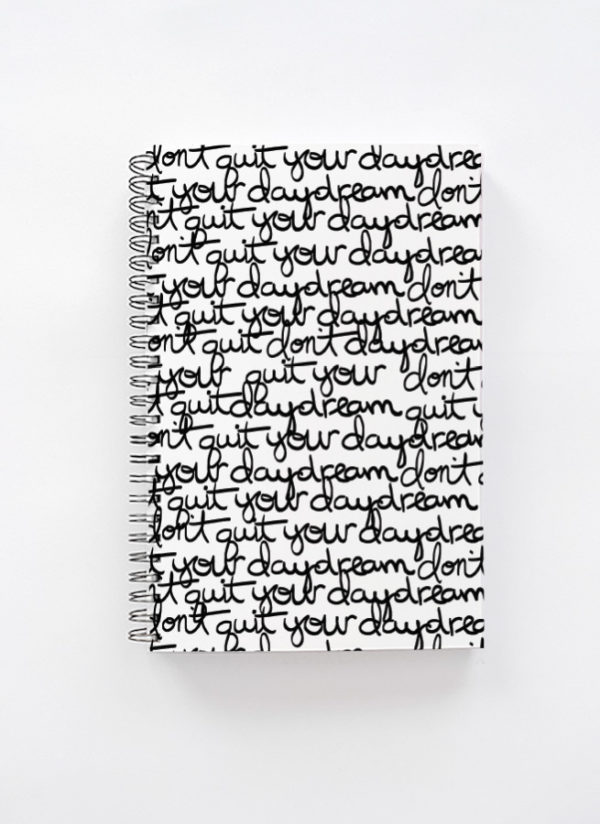 dont quit your daydrea
t your daydream dont
nt quit your daydream
ont quit your daydrea
your daydream dont
t quit your daydream
ont quit dont daydrea
your quit your dont
t quit daydream quit y
ont quit your daydream
your daydream dont
t quit your daydream
dont quit your daydrea
t your daydream dont
t quit your daydream
dont quit your daydrea